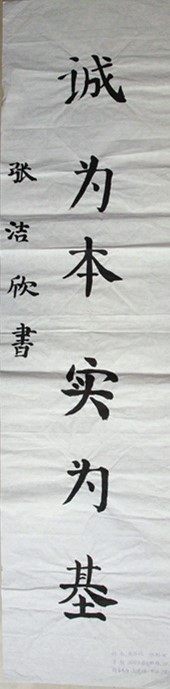 诚为本实为基
张洁欣書